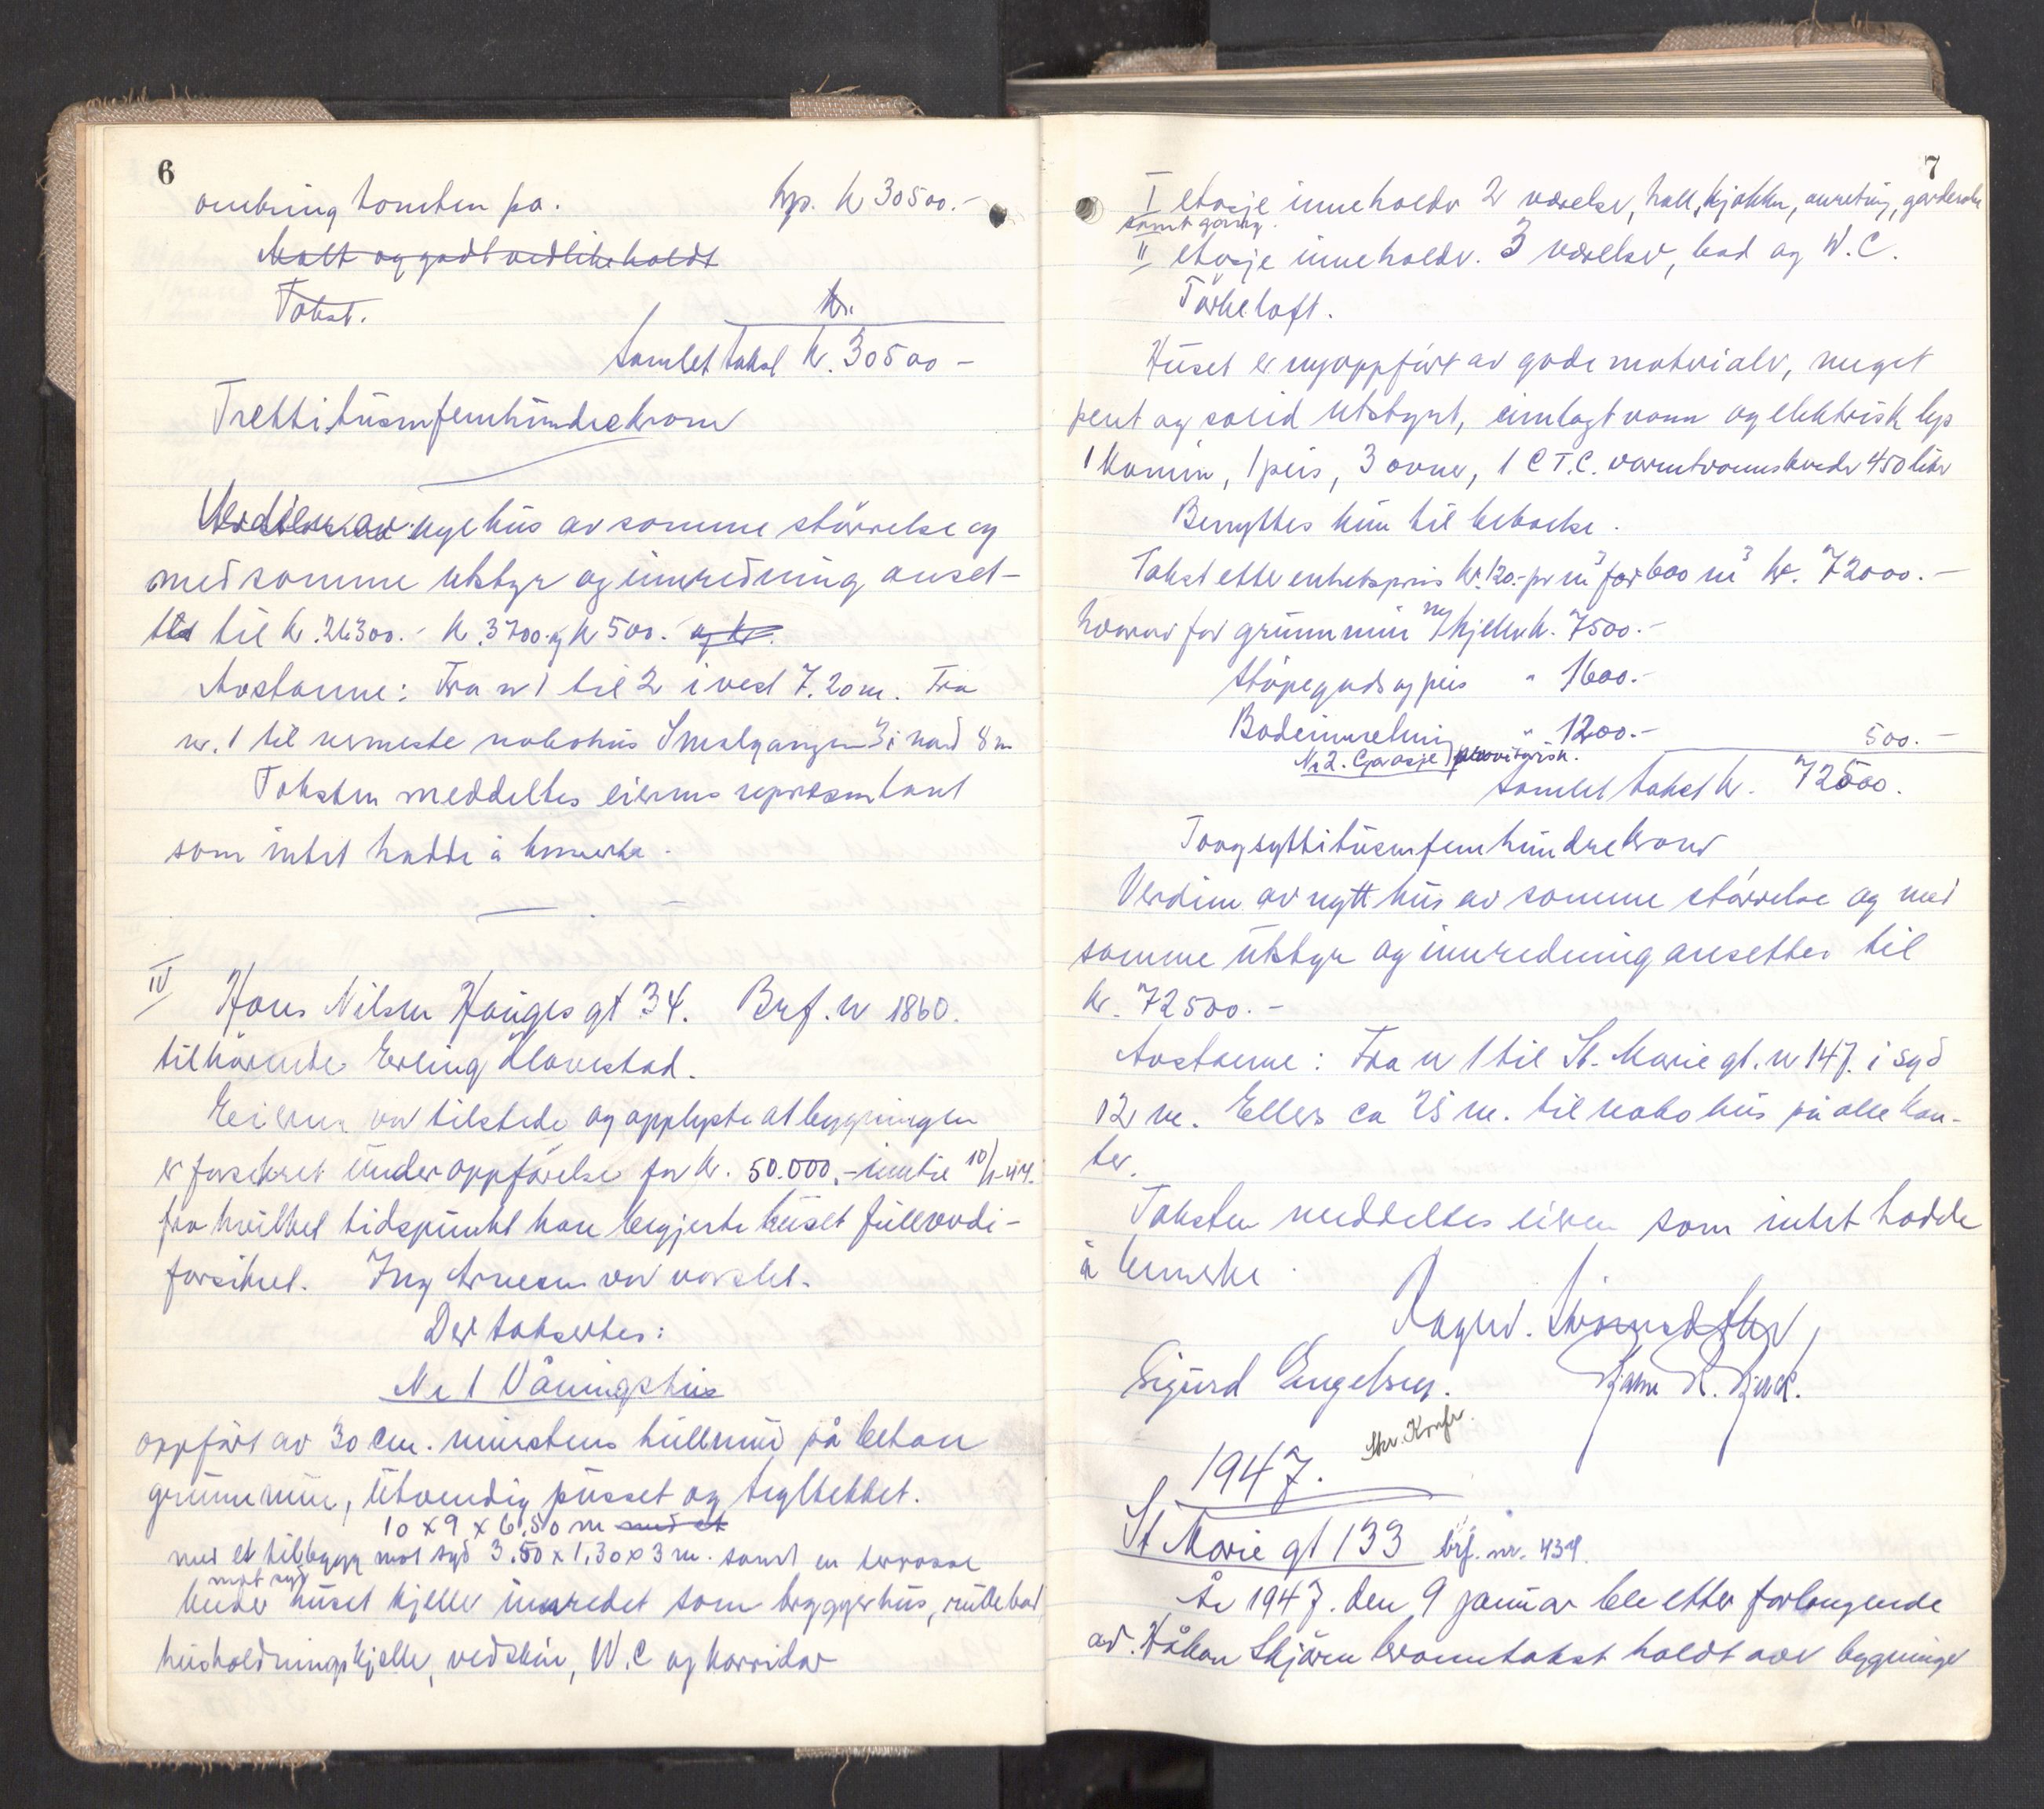 6
omkring tomten på. Trp. kr 30500.-
Malt og godt vedlikeholdt
Takst. kr.
Samlet takst kr. 30500 -
Trettitusenfemhundrekroner
Verdien av nye hus av samme störrelse og
med samme utstyr og innredning anset-
tes til kr. 26300.- kr. 3700.- og kr 500. og kr.
Avstanne: Fra nr 1 til 2 i vest 7.20m. Fra
nr. 1 til nermeste nabohus Smalgangen 3 i nord 8 m
Taksten meddeltes eierens representant
som intet hadde å bemerke.
IV Hans Nilsen Hauges gt 34. Brf. nr 1860.
tilhörende Erling Ölovestad.
Eieren var tilstede og opplyste at bygningen
er forsikret under oppförelse for kr. 50.000.- inntil 10/1-44.
fra hvilket tidspunkt han begjerte huset fullverdi-
forsikret. Ing Arnesen var varslet.
Der takseertes:
Nr 1 Våningshus
oppfört av 30 cm. murstens hullmur på betong
grunnmur, utvendig pusset og tegltekket.
10 x 9 x 6.50 m med et
med et tilbygg mot syd 3.50 x 1.30 x 3 m. samt en terrasse
mot syd
Under huset kjeller innredet som bryggerhus, rullebod
husholdningskjeller, vedskur, W.C og korridor
7
I etasje inneholder 2 værelser, hall, kjøkken, anretning, garderobe
samt gang.
II etasje inneholder. 3 værelser, bad og W.C.
Törkeloft.
Huset er nyoppfört av gode materialer, meget
pent og solid utstyrt, innlagt vann og elektrisk lys
1 kamin, 1 peis, 3 ovner, 1 C.T.C. varmtvannsbereder 450 liter
Benyttes kun til beboelse.
Takst etter enhetspris kr. 120.- pr m³ for 600 m³ kr. 72000.-
hvorav for grunnmur og kjeller kr. 7500.-
Støpegods og peis " 1600.-
Badeinnretning " 1200.- 500.-
Nr 2. Garasje provisorisk.
Samlet takst kr. 72500.
Toogsyttitusenfemhundrekroner
Verdien av nytt hus av samme störrelse og med
samme utstyr og innredning ansettes til
kr. 72500.-
Avstanne: Fra nr 1 til St. Marie gt. nr 147. i syd
12 m. Ellers ca 25 m. til nabohus på alle kan-
ter.
Taksten meddeltes eieren som intet hadde
å bemerke.
Sigurd Engelsen.
1947. Skr. Konfr.
St Marie gt 133 brf. nr. 434.
År 1947. den 9 januar ble etter forlangende
av. Håkon Skjören branntakst holdt over bygninger